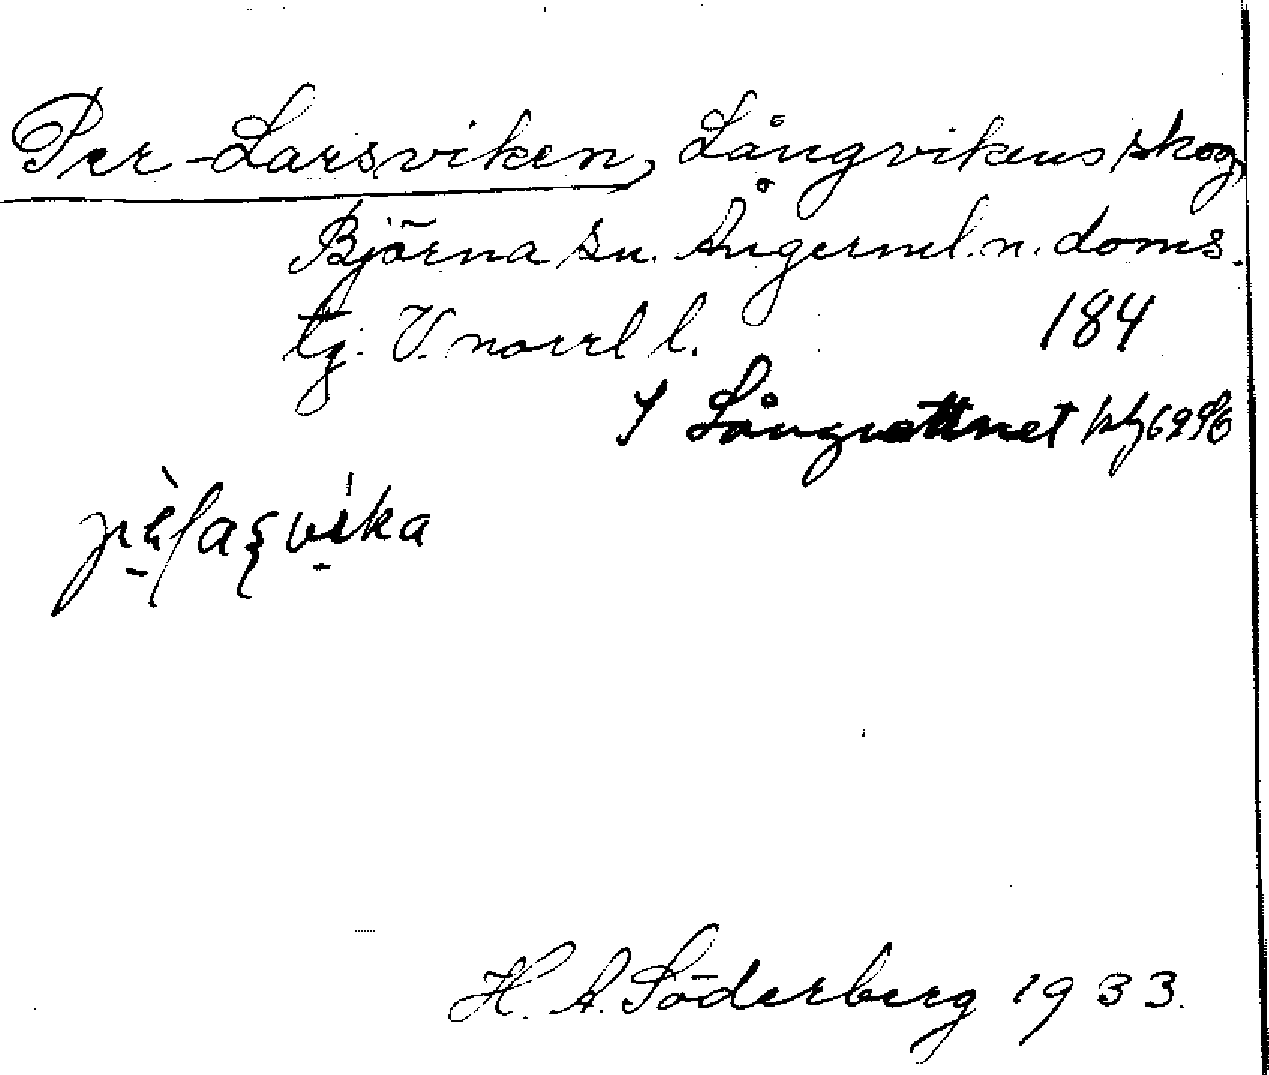 Per-Larsviken, Långvikens skog,
Björna sn. Ångerml. n. doms.
tg. V. norrl l.
184
I Långvattnet
H. A. Söderberg 1933.